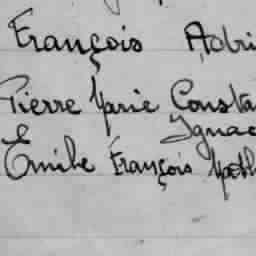 François Adri
Pierre Marie Consta
Ignac
Emile François Math